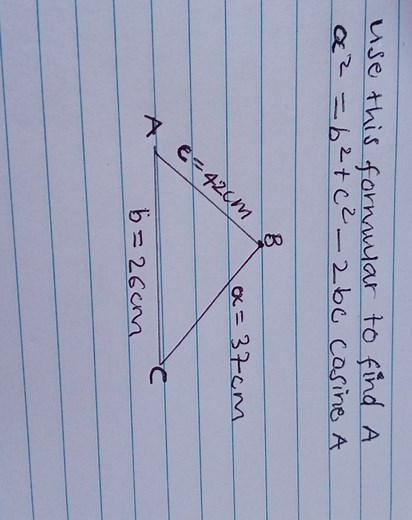 Use this formular to find A
a² = b² + c² - 2bc cosine A
B
c = 42cm
a = 37cm
A
b = 26cm
C